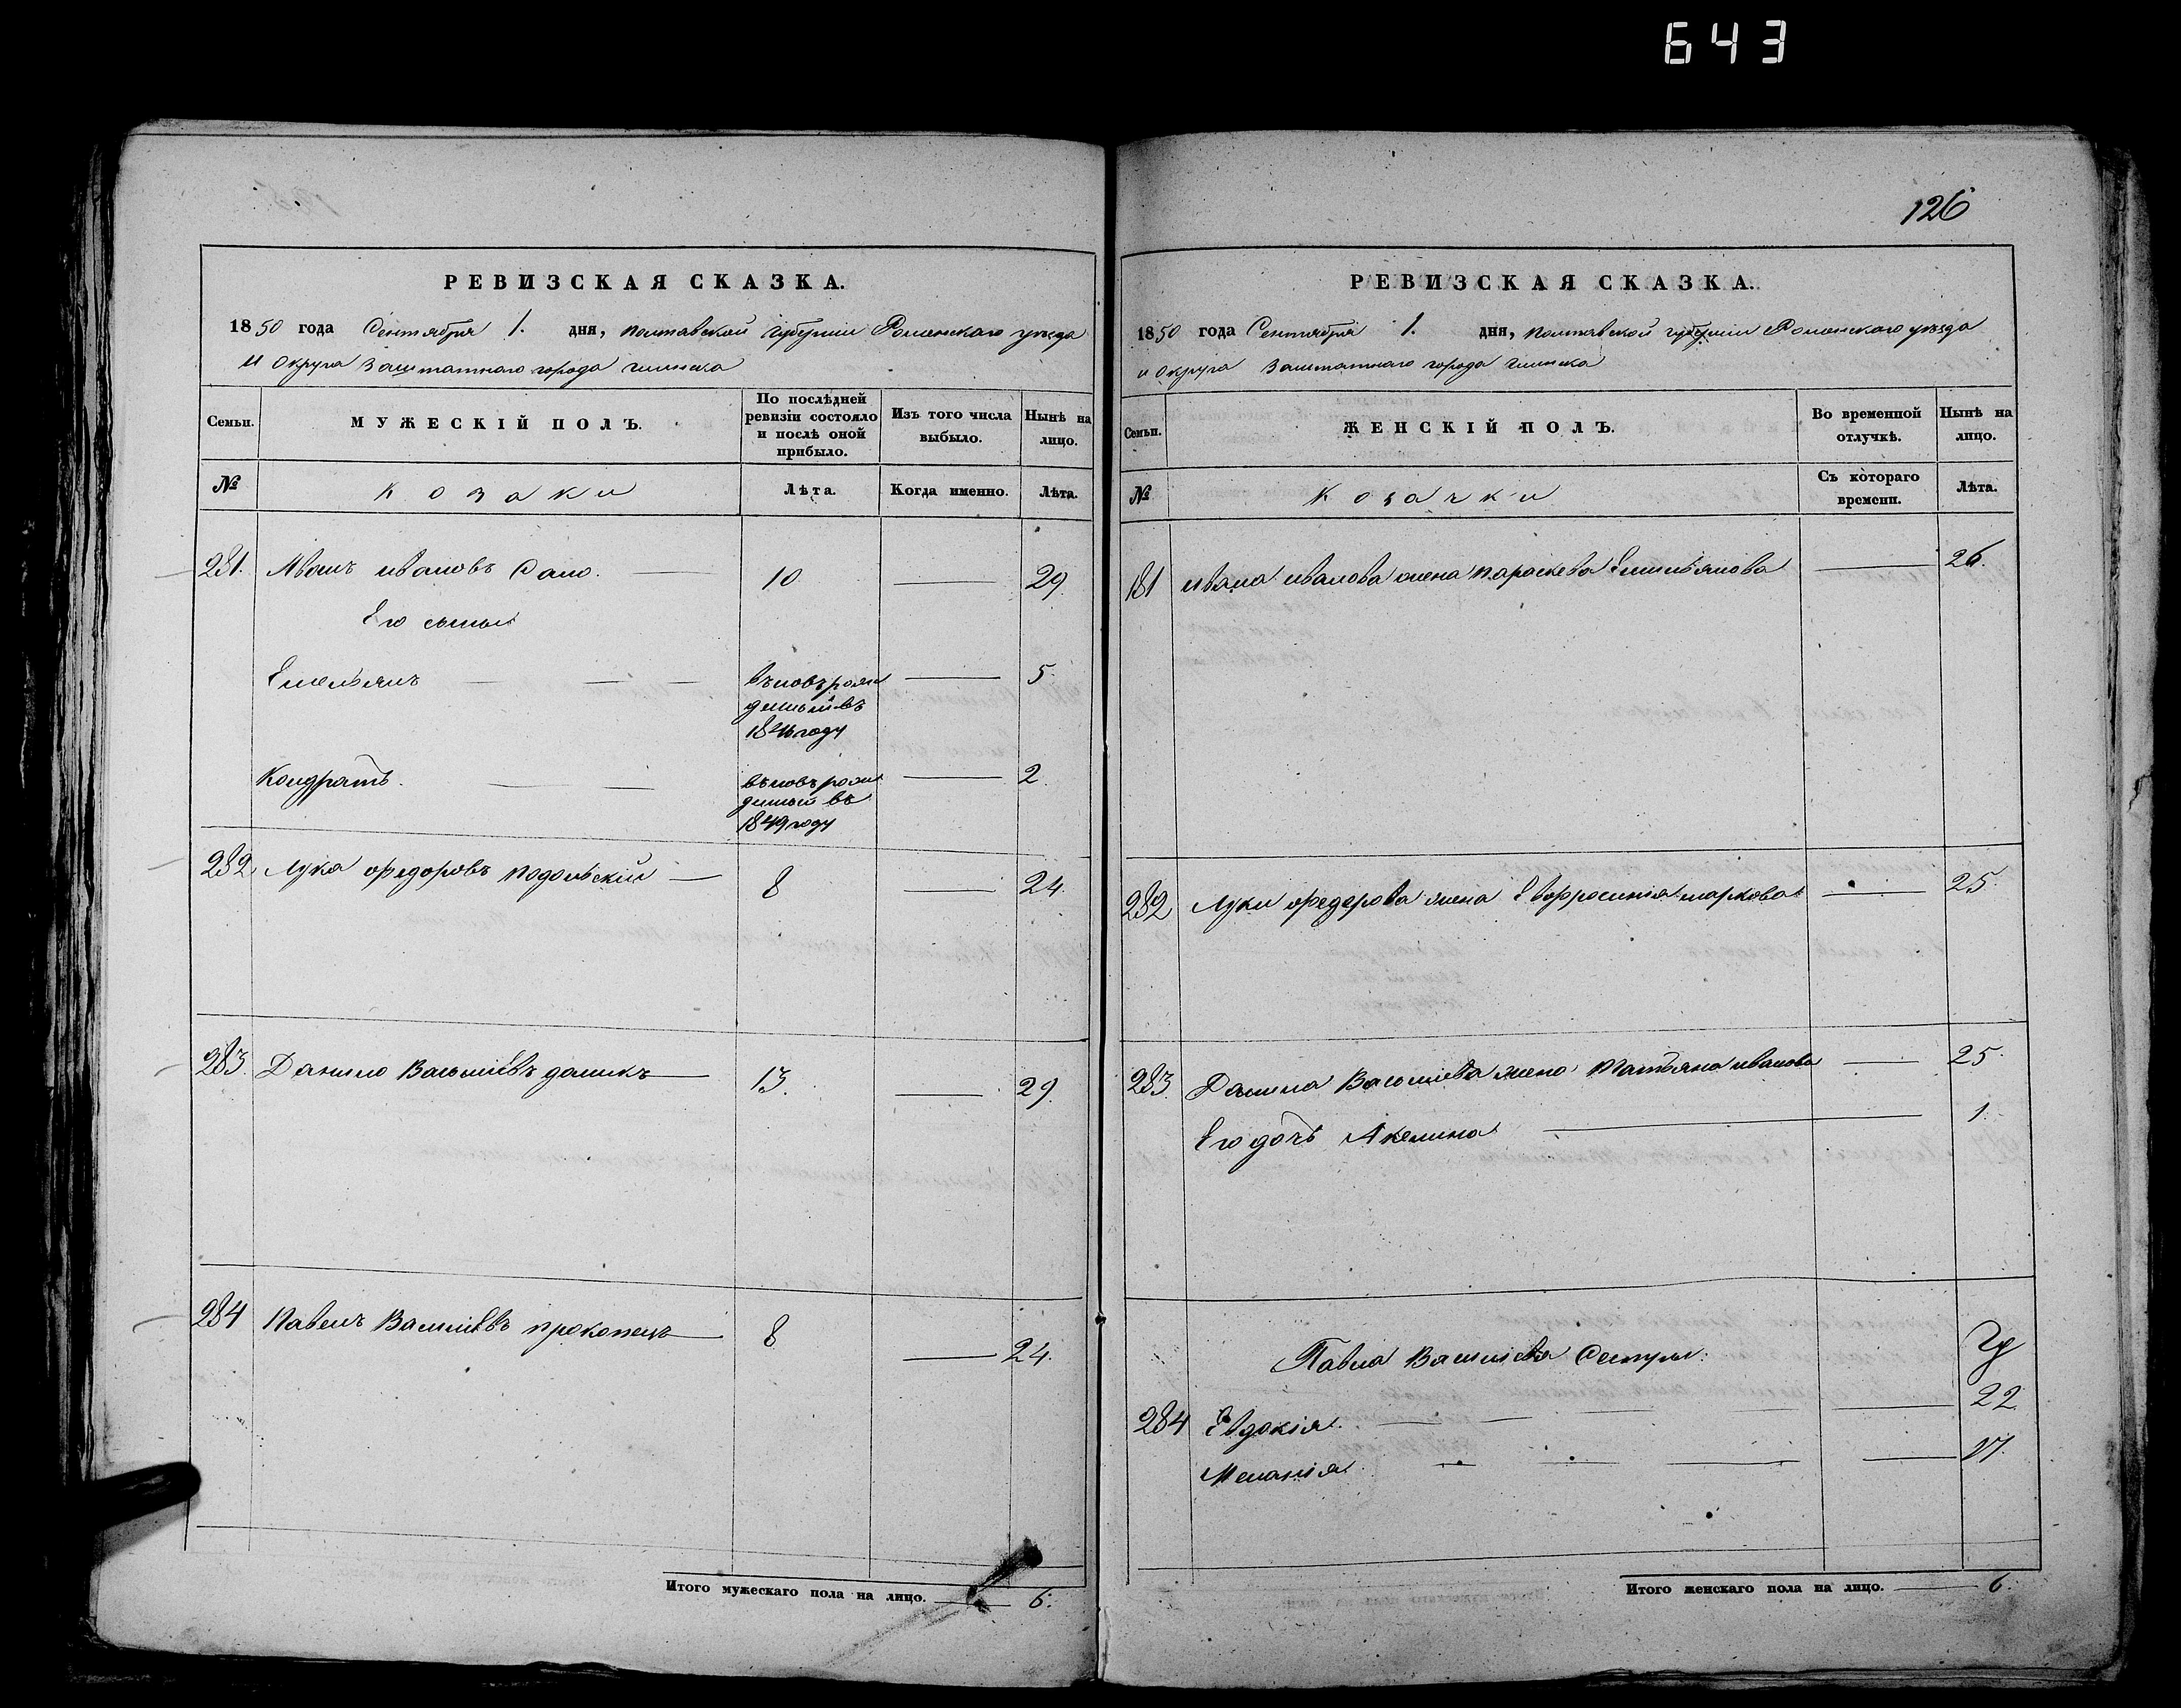 643
РЕВИЗСКАЯ СКАЗКА.
1850 года Сентября 1. дня, полтавской губернии Роменскаго уезда
и округа Заштатнаго города глинска
Семьи.
МУЖЕСКІЙ ПОЛЪ.
По послѣдней ревизіи состояло и послѣ оной прибыло.
Изъ того числа выбыло.
Нынѣ на лицо.
№
козаки
Лѣта.
Когда именно.
Лѣта.
281. Иванъ ивановъ Само. 10 29
Его сыны
Емельянъ вѣновь рож 5
денный въ
году
Кондратъ. вѣновь рож 2
денный въ
1849 году
282 Лука федоровъ подольскій 8 24.
283. Данило Васильевъ 13. 29.
284 Павелъ Васильевъ прокопецъ 8 24.
Итого мужескаго пола на лицо. 6.
126
РЕВИЗСКАЯ СКАЗКА.
1850 года Сентября 1. дня, полтавской губерніи Роменскаго уезда
и округа Заштатнаго города глинска
Семьи.
ЖЕНСКІЙ ПОЛЪ.
Во временной отлучкѣ.
Нынѣ на лицо.
№
козачки
Съ котораго времени.
Лѣта.
181 Ивана иванова жена параскева Емельянова 26.
282 Луки федорова жена Евфросинія маркова 25.
283. Данила Васильева жена Татьяна иванова 25.
Его дочь Акелина 1.
Павла Васильева Сестры:
284 Евдокія. 22
Меланія 17.
Итого женскаго пола на лицо. 6.